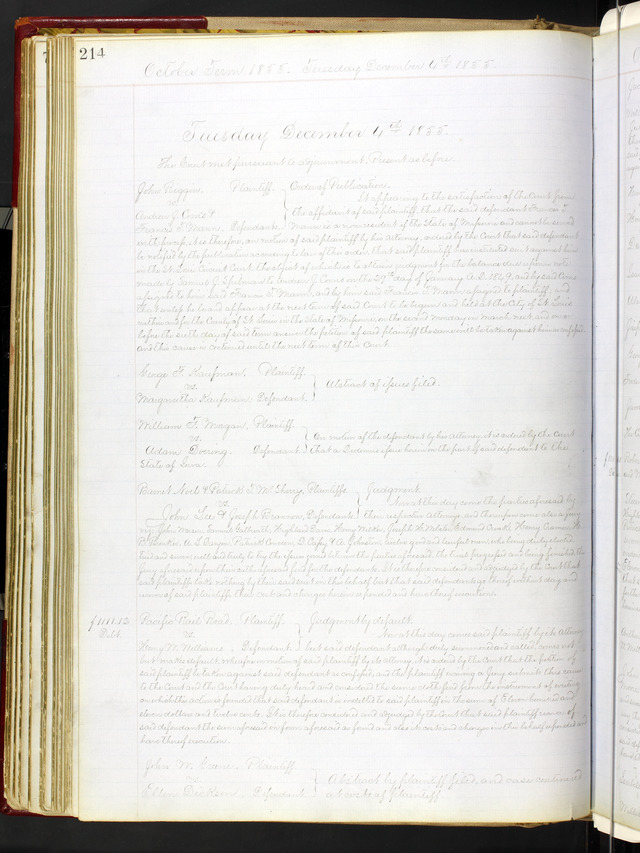 214
October Term 1855. Tuesday December 4th 1855.
Tuesday December 4th 1855.
The Court met pursuant to adjournment. Present as before.
John Riggin, Plaintiff Order of Publication.
vs. It appearing to the satisfaction of the Court from
Andrew J. & the affidavit of said plaintiff, that the said defendant Francis
Francis T. Mann, Defendants. Mann is a non resident of the State of Missouri and cannot be served
with process, it is therefore, on motion of said plaintiff by his Attorney, ordered by the Court that said defendant
be notified by the publication according to law of this order, that said plaintiff has instituted suit against him
in the St. Louis Circuit Court, the object of which is to attain judgment for the balance due upon a note
made by Samuel to Andrew J. on the 29th day of January A.D. 1849, and by said
assigned to him said Francis T. Mann, and by him said Francis T. Mann assigned to plaintiff, and
that unless he be and appear at the next term of said Court to be begun and held at the City of St. Louis
within and for the County of St. Louis in the State of Missouri on the second monday in march next, and on or
before the sixth day of said term answer the petition of said plaintiff the same will be taken against him as confessed.
and this cause is continued until the next term of this Court.
George F. Kaufman, Plaintiff
vs. Abstract of issues filed.
Margaretta Kaufman, Defendant.
William T. Plaintiff.
vs. On motion of the defendant by his Attorney, it is ordered by the Court
Adam Defendant. that a Dedimus issue herein on the part of said defendant to the
State of Iowa.
Barnet Noel & Patrick S. McSherry, Plaintiffs Judgment.
vs. Now at this day come the parties aforesaid by
John Lee & Joseph Defendants. their respective Attorneys, and thereupon come also a jury
John
good and lawful men who being duly elected
tried and sworn well and truly to try the issue joined between the parties aforesaid, the trial progressed and being finished the
Jury aforesaid upon their oath aforesaid find for the defendants. It is therefore considered and adjudged by the Court that
said plaintiffs take nothing by their said suit in this behalf but that said defendants go thereof without day and
recover of said plaintiffs their costs and charges herein expended and have thereof execution.
$1111.12 Pacific Rail Road, Plaintiff. Judgment by default.
Debt. vs. Now at this day comes said plaintiff by its Attorney
Henry M. Williams, Defendant but said defendant although duly summoned and called, comes not
but makes default, whereupon on motion of said plaintiff by its Attorney, it is ordered by the Court that the petition of
said plaintiff be taken against said defendant as confessed, and the plaintiff waiving a Jury submits this cause
to the Court and the Court having duly heard and considered the same doth find from the instrument of writing
on which this action is founded that said defendant is indebted to said plaintiff in the sum of Eleven hundred and
eleven dollars and twelve cents. It is therefore considered and adjudged by the Court that said plaintiff recover of
said defendant the sum aforesaid in form aforesaid as found and also its costs and charges in this behalf expended and
have thereof execution.
John M. Plaintiff
vs. Abstract by plaintiff filed, and case continued
Dickson, Defendant at costs of plaintiff.